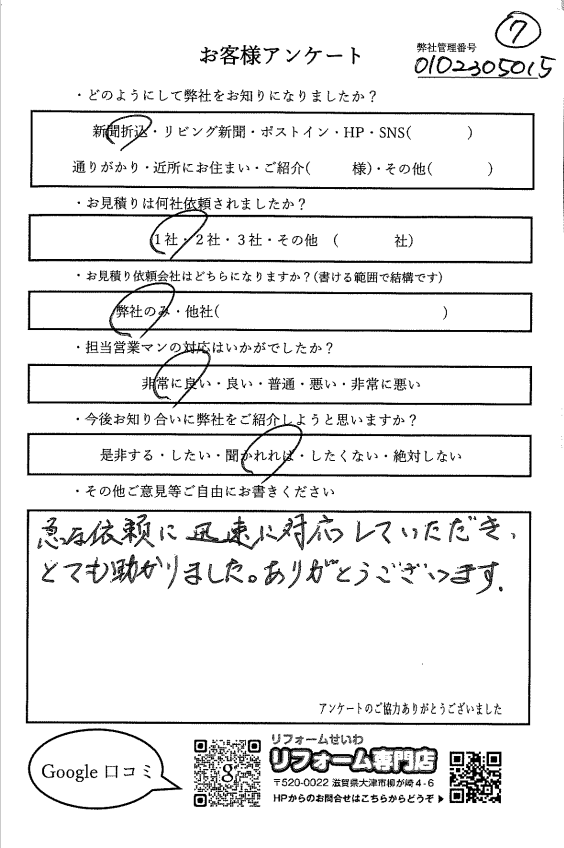 ⑦
お客様アンケート
弊社管理番号
0102305015
・どのようにして弊社をお知りになりましたか？
新聞折込・リビング新聞・ポストイン・HP・SNS(　　　　)
通りがかり・近所にお住まい・ご紹介(　　　様)・その他(　　　　)
・お見積りは何社依頼されましたか？
1社・2社・3社・その他　(　　　　社)
・お見積り依頼会社はどちらになりますか？(書ける範囲で結構です)
弊社のみ・他社(　　　　　　　　　　　　　　　　)
・担当営業マンの対応はいかがでしたか？
非常に良い・良い・普通・悪い・非常に悪い
・今後お知り合いに弊社をご紹介しようと思いますか？
是非する・したい・聞かれれば・したくない・絶対しない
・その他ご意見等ご自由にお書きください
急な依頼に迅速に対応していただき、
とても助かりました。ありがとうございます.
アンケートのご協力ありがとうございました
Google 口コミ
g
リフォームせいわ
リフォーム専門店
〒520-0022 滋賀県大津市柳が崎4-6
HPからのお問合せはこちらからどうぞ▶